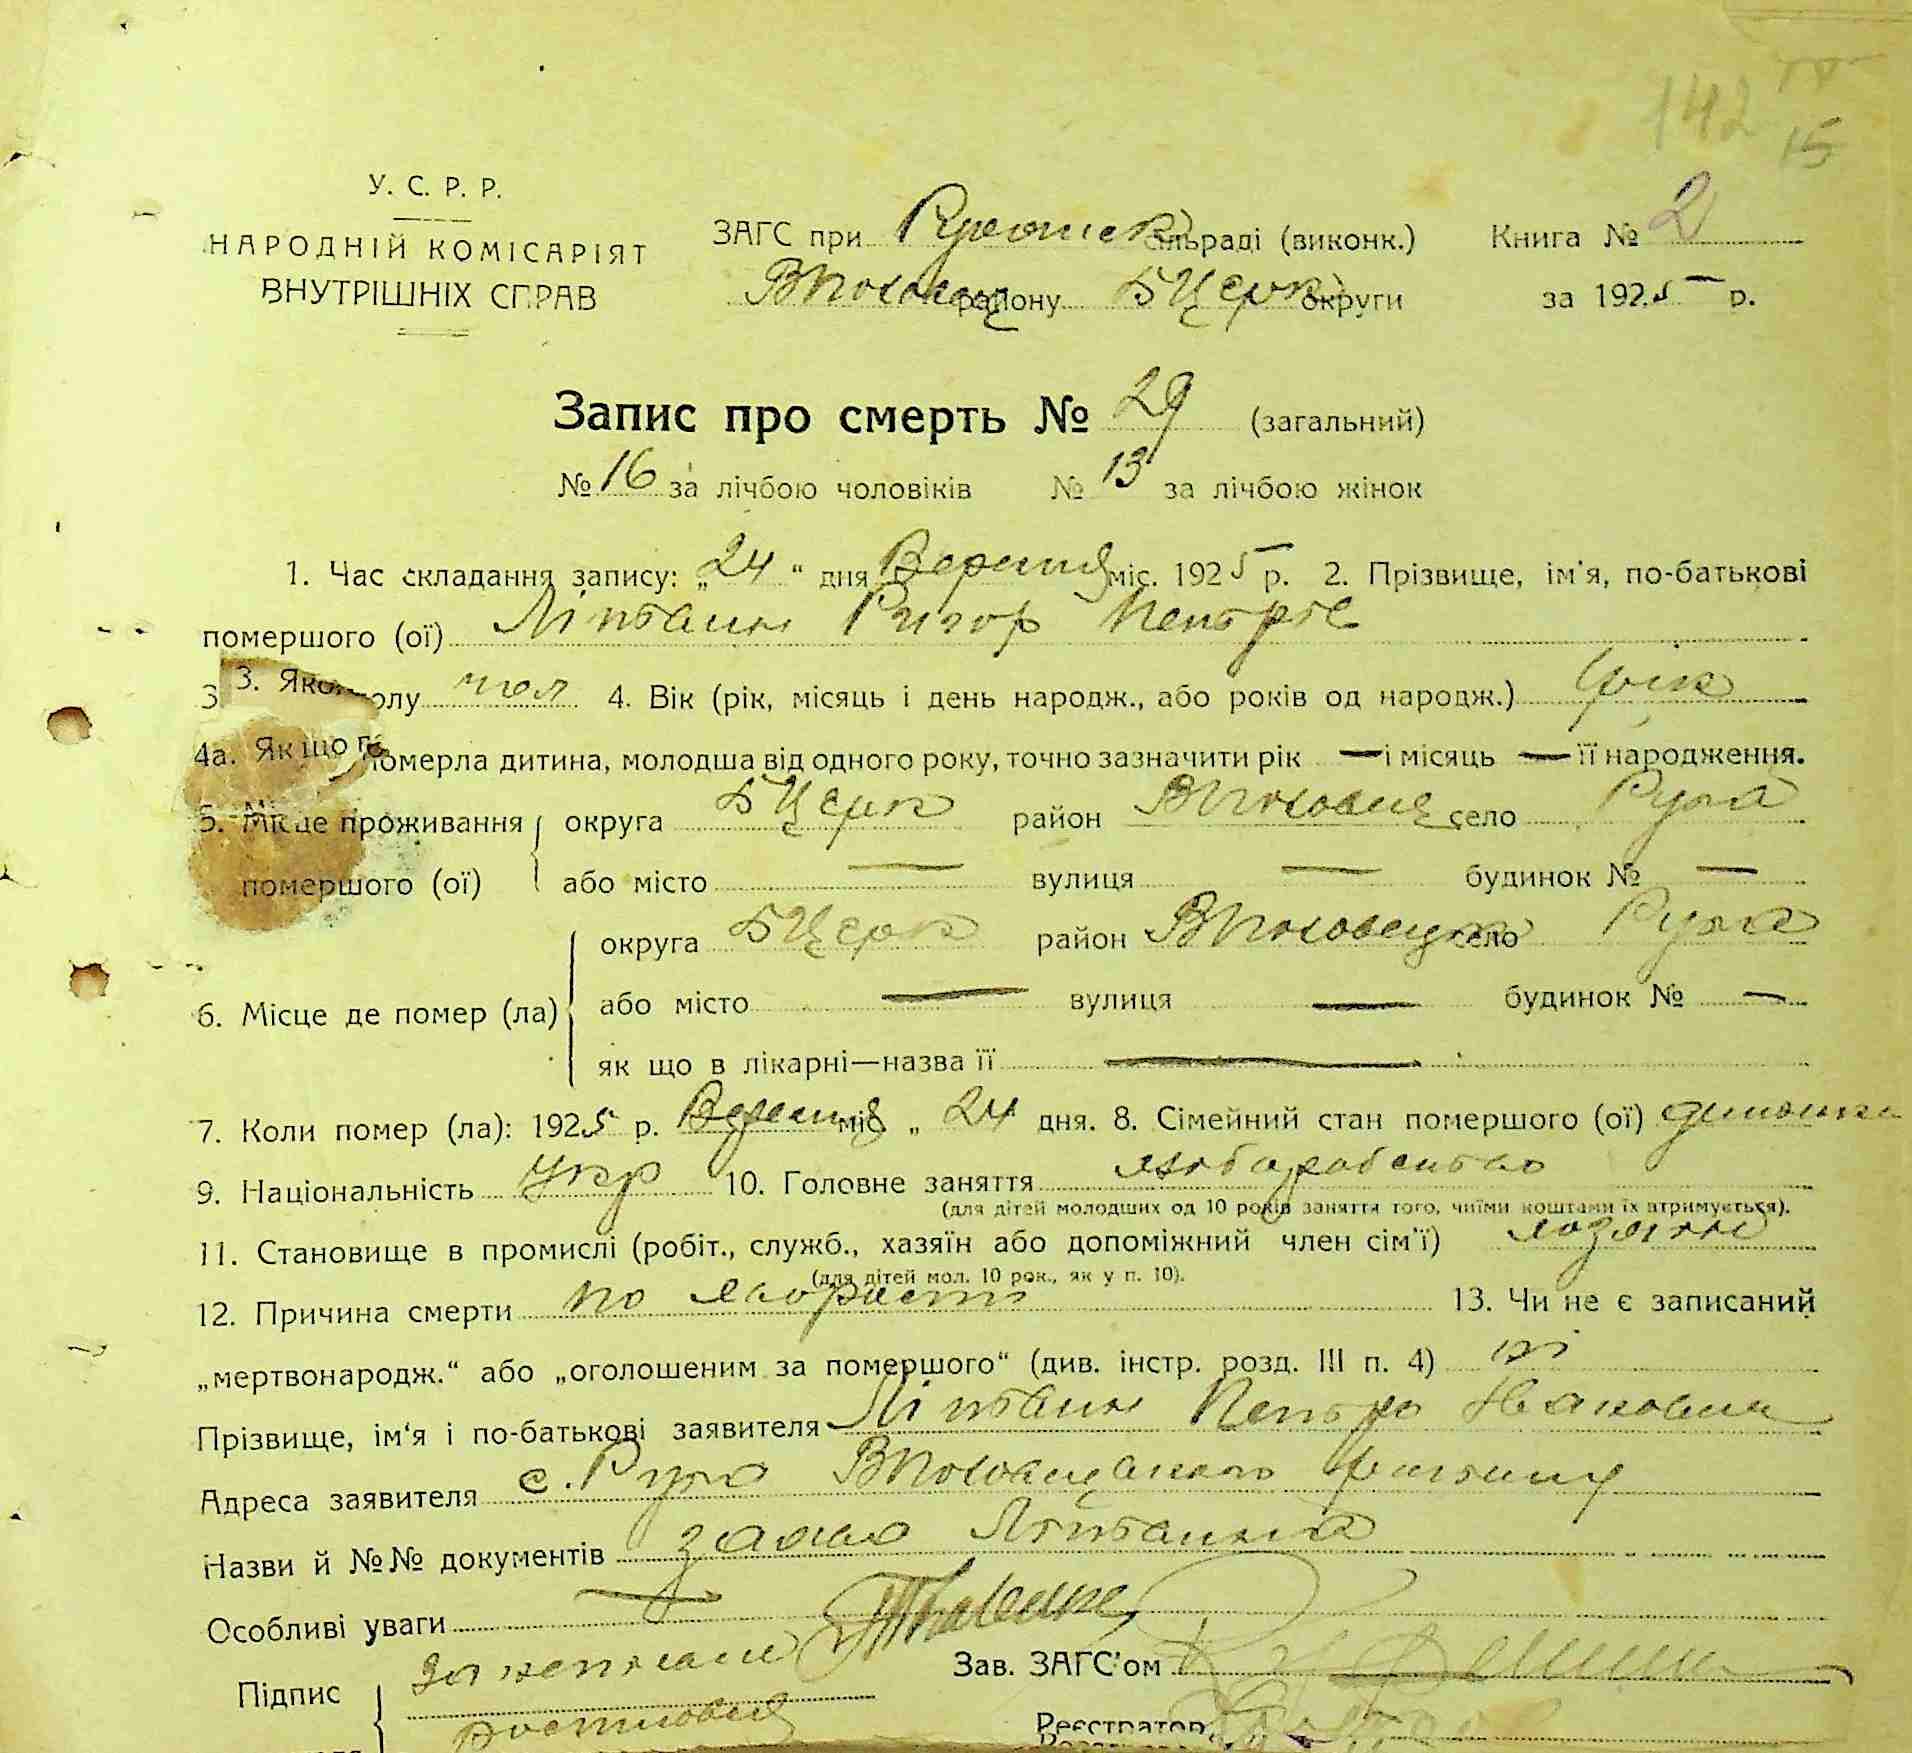 142
15
У. С. Р. Р.
НАРОДНІЙ КОМІСАРІЯТ
ВНУТРІШНІХ СПРАВ
ЗАГС при сільраді (виконк.) Книга № 2
району БЦерк округи за 1925 р.
Запис про смерть № 29 (загальний)
№ 16 за лічбою чоловіків № 13 за лічбою жінок
1. Час складання запису: „24“ дня Вересня міс. 1925 р. 2. Прізвище, ім'я, по-батькові
помершого (ої) Літвин Ригор Петров
3. Якого полу чол 4. Вік (рік, місяць і день народж., або років од народж.) рік
4а. Як що померла дитина, молодша від одного року, точно зазначити рік — і місяць — її народження.
5. Місце проживання округа БЦерк район село Руда
помершого (ої) або місто — вулиця — будинок № —
округа БЦерк район село Руда
6. Місце де помер (ла) або місто — вулиця — будинок № —
як що в лікарні—назва її —
7. Коли помер (ла): 1925 р. Вересня міс „ 24 дня. 8. Сімейний стан помершого (ої)
9. Національність Укр 10. Головне заняття хліборобство
(для дітей молодших од 10 років заняття того, чиїми коштами їх втримується).
11. Становище в промислі (робіт., служб., хазяїн або допоміжний член сім'ї) хозяїн
(для дітей мол. 10 рок., як у п. 10).
12. Причина смерти по хворости 13. Чи не є записаний
„мертвонародж.“ або „оголошеним за помершого“ (див. інстр. розд. III п. 4) ні
Прізвище, ім'я і по-батькові заявителя Літвин Петро Иванович
Адреса заявителя с. Руда
Назви й №№ документів заява Літвина
Особливі уваги —
Підпис за неписьм Зав. ЗАГС'ом
Реєстратор